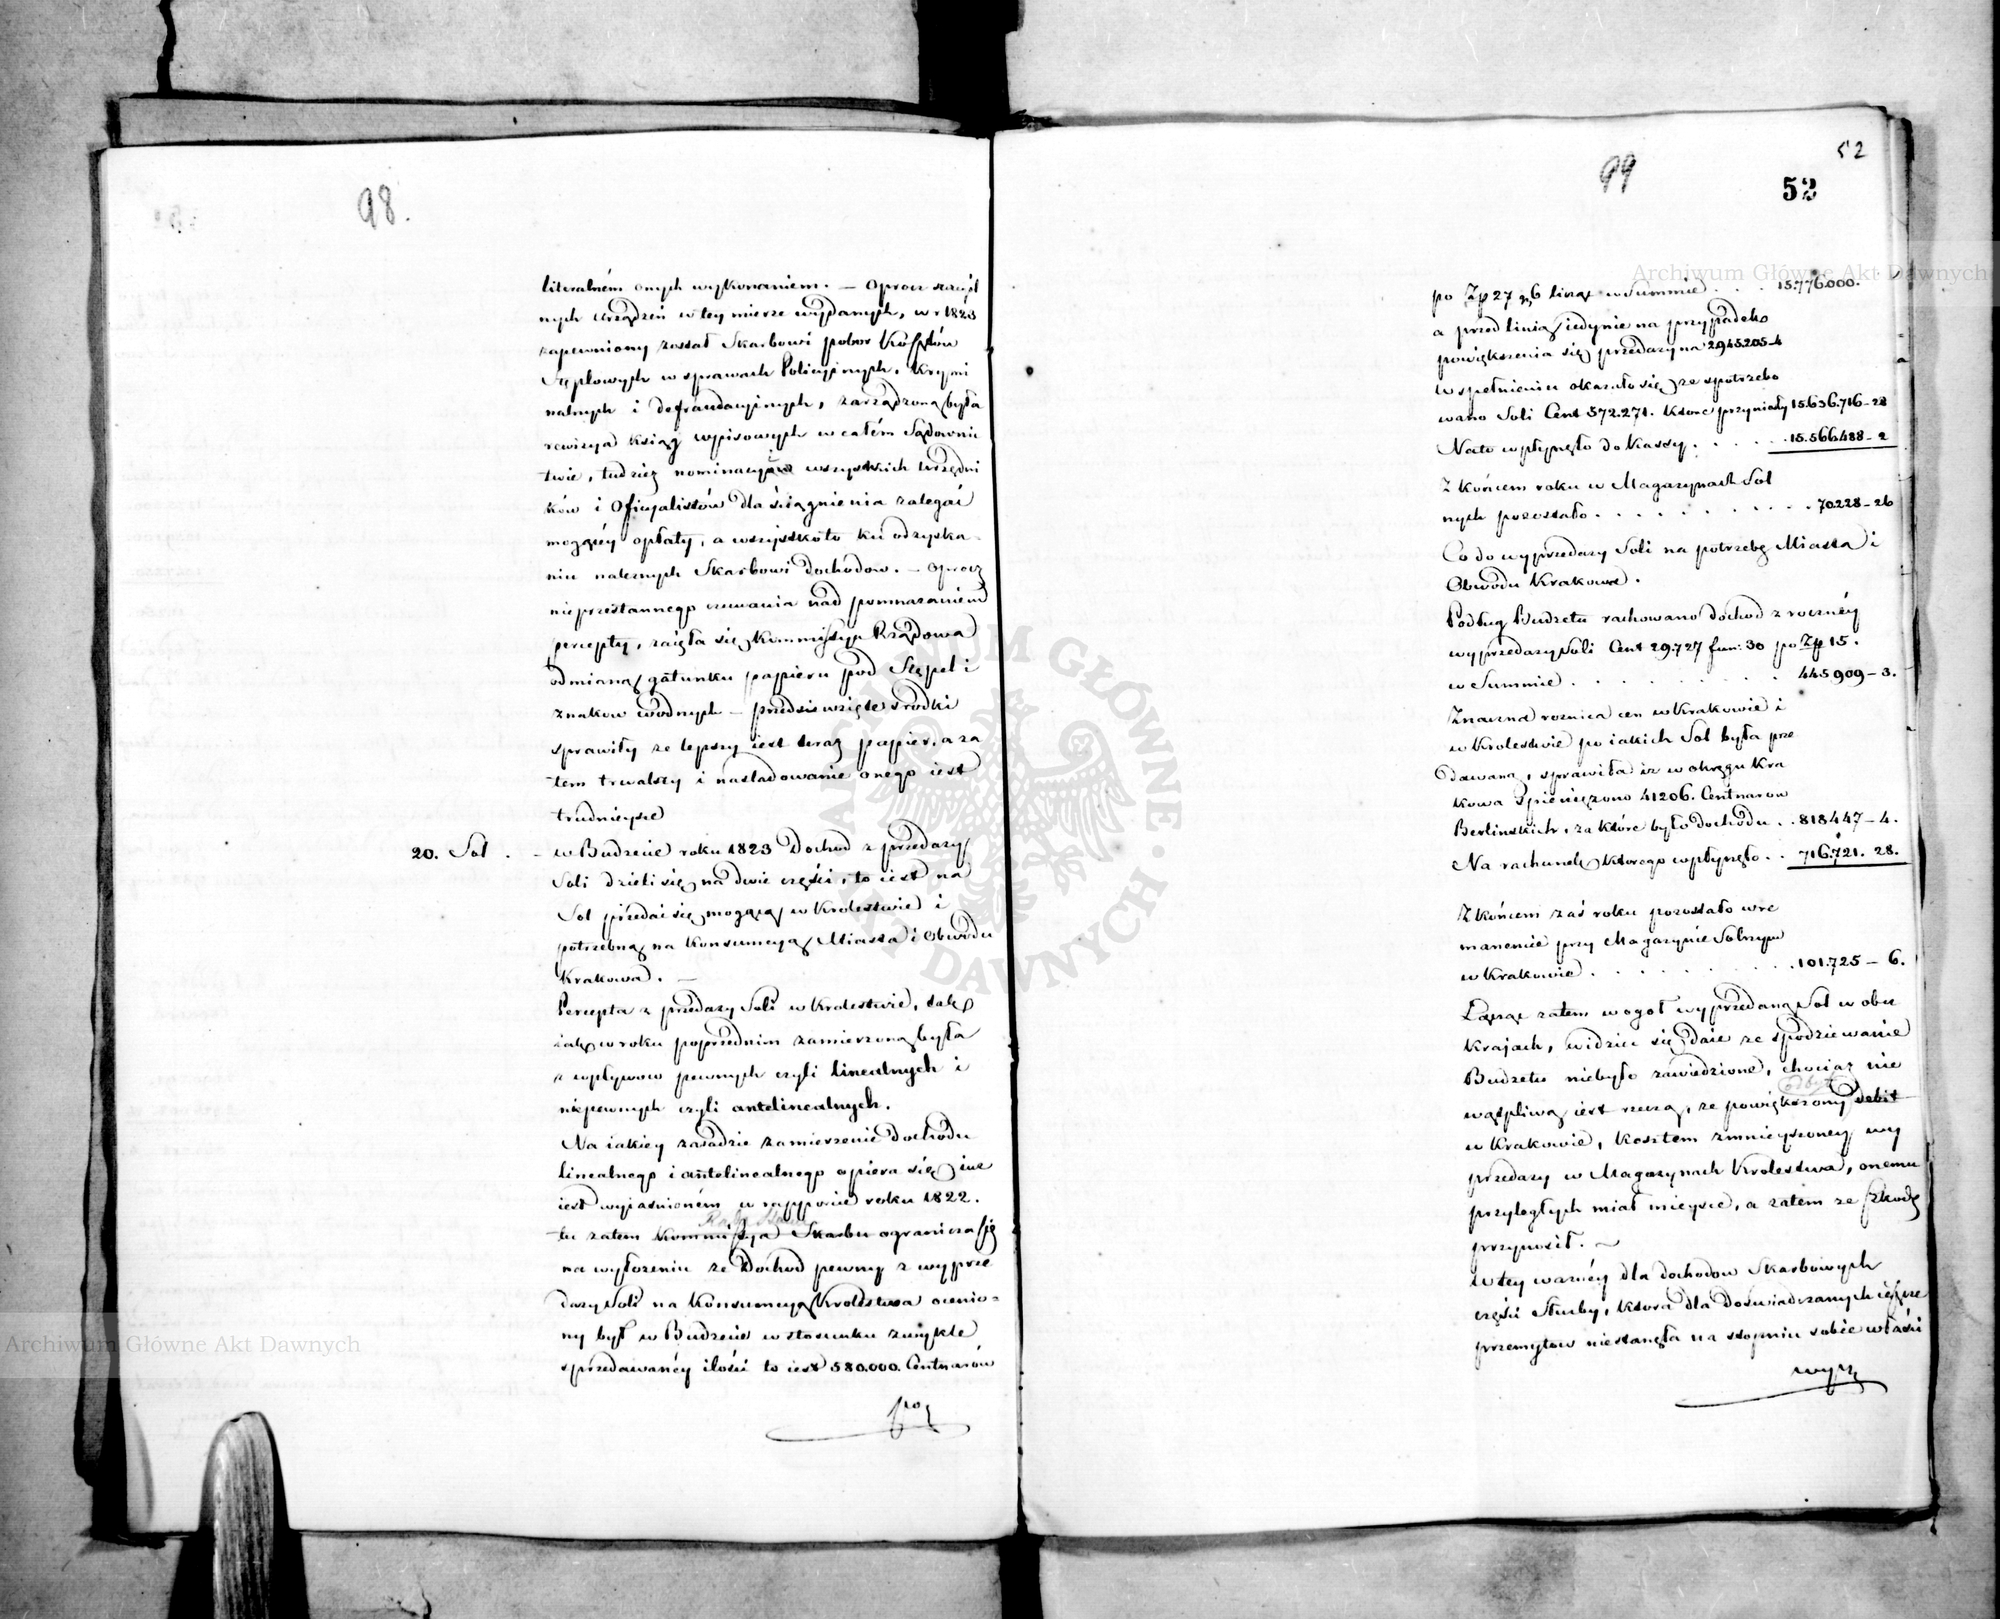 98.
literalném onych wykonaniem. — Oprocz szczól
nych urządzeń w tey mierze wydanych, w r 1823
zapewniony został Skarbowi pobor Kosztów
Stęplowych w sprawach Policyinych, Krymi
nalnych i defraudacyinych, zarządzoną była
rewizya ksiąg wpisowych w całém Sądownic
twie, tudzież nominacyi wszystkich Urzędni
ków i Oficyalistów dla ściągnienia zalegać
mogącéy opłaty, a wszystko to ku odzyska-
niu należnych Skarbowi dochodow. — Oprocz
nieprzestannego czuwania nad pomnażaniem
percepty, zaięła się Kommissya Rządowa
odmianą gatunku papieru pod Stępel i
znakow wodnych — przedsiewzięte srodki
sprawiły ze lepszy iest teraz papier, a za
tem trwalszy i nasladowanie onego iest
trudnieysze
20. Sol . — w Budżecie roku 1823 Dochod z przedaży
Soli dzieli się na dwie części, to iest na
Sol przedai się mogącą w Krolestwie i
potrzebną na Konsumcyą Miasta i Obwodu
Krakowa. —
Percepta z przedaży Soli w Krolestwie, tak
iak w roku poprzednim zamierzoną była
z wpływow pewnych czyli linealnych i
niepewnych czyli antelinealnych.
Na iakiey zasadzie zamierzenie dochodu
linealnego i antelinealnego opiera się iuż
iest wyiasnioném w rapporcie roku 1822.
Rada Stanu
tu zatem Kommissya Skarbu ogranicza się
na wyłożeniu ze Dochod pewny z wyprze
daży Soli na Konsumcyą Krolestwa ocenio-
ny był w Budżecie w stosunku zwykle
sprzedawanéy ilości to iest 580.000. Centnarów
po
Archiwum Główne Akt Dawnych
99
52
52
Archiwum Główne Akt Dawnych
po Zp 27 g 6 licząc w Summie . . . 15.776.000.
a przed linią iedynie na przypadek
powiększenia się przedaży na 2945.205-4
w spełnieniu okazało się ze spotrzebo
wano Soli Cent 572.271. ktore przyniosły 15.636.716-28
Na to wpłynęło do Kassy. . . . . 15.566.488-2
Z końcem roku w Magazynach Sol
nych pozostało . . . . . . . . . 70.228-26
Co do wyprzedaży Soli na potrzebę Miasta i
Obwodu Krakowa.
Podług Budżetu rachowano dochod z rocznéy
wyprzedaży Soli Cent 29.727 fun: 30 po Zp 15.
w Summie . . . . . . . . . 445.909-3.
Znaczna roznica cen w Krakowie i
w Krolestwie po iakich Sol była prze
dawana, sprawiła iz w okręgu Kra
kowa spieniężono 41206. Centnarow
Berlinskich, za które było dochodu . . 818447-4.
Na rachunek którego wpłynęło . . 716.721. 28.
Z końcem zaś roku pozostało w re
manencie przy Magazynie Solnym
w Krakowie . . . . . . . . . 101.725-6.
Łącząc zatem w ogoł wyprzedaną Sol w obu
Krajach, widzieć się daie ze spodziewanie
Budżetu niebyło zawiedzione, chociaż nie
odbyt
wątpliwą iest rzeczą, ze powiększony debit
w Krakowie, kosztem zmnieyszoney wy
przedaży w Magazynach Krolestwa, onemu
przyległych miał mieysce, a zatem ze szkodę
przynosił. —
W tey ważnéy dla dochodow Skarbowych
części Służby, ktora dla doswiadczanych ieszcze
przemytow niestanęła na stopniu sobie właści
wym
ARCHIWUM GŁÓWNE AKT DAWNYCH